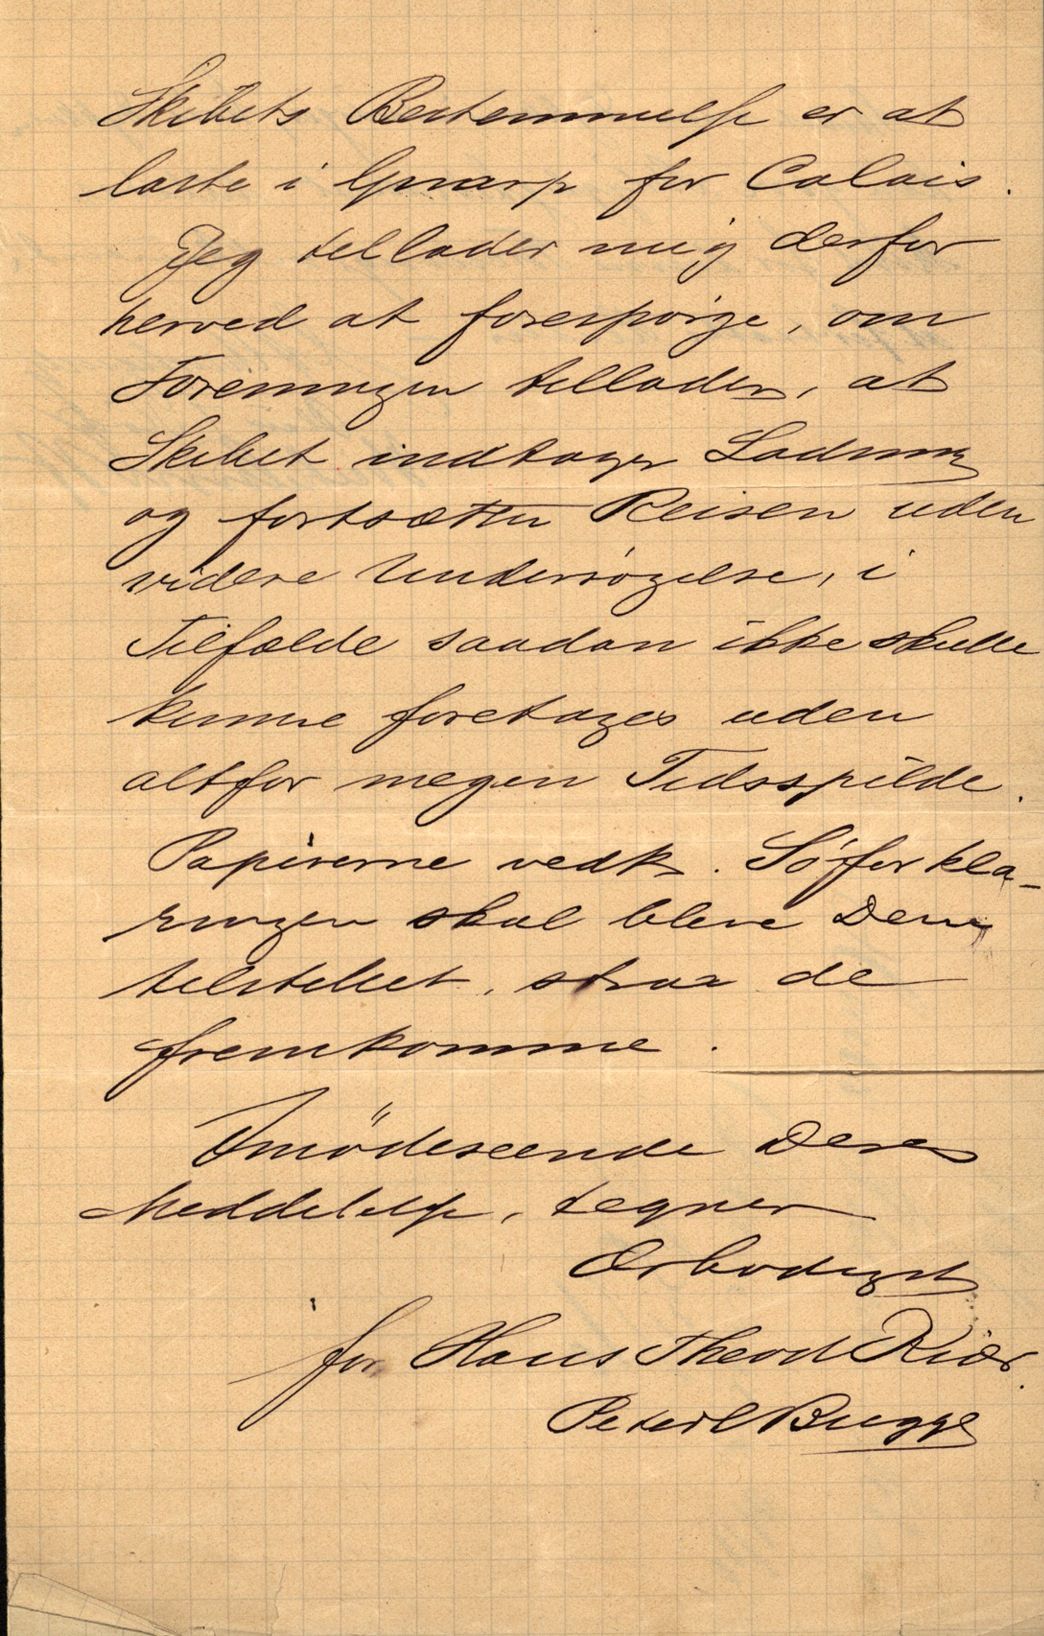 Skibets Bestemmelse er at
laste i Gnarp for Calais.
Jeg tillader mig derfor
herved at forespørge, om
Foreningen tillader, at
Skibet indtager Ladning
og fortsætter Reisen uden
videre Undersøgelse, i
Tilfælde saadan ikke skulle
kunne foretages uden
altfor megen Tidsspilde.
Papirerne vedk. Søforkla-
ringen skal blive Dem
tilstillet, strax de
fremkomme.
Imødeseende Deres
Meddelelse, tegner
Ærbødigst
for Hans Theod Kiær.
Peter Bugge